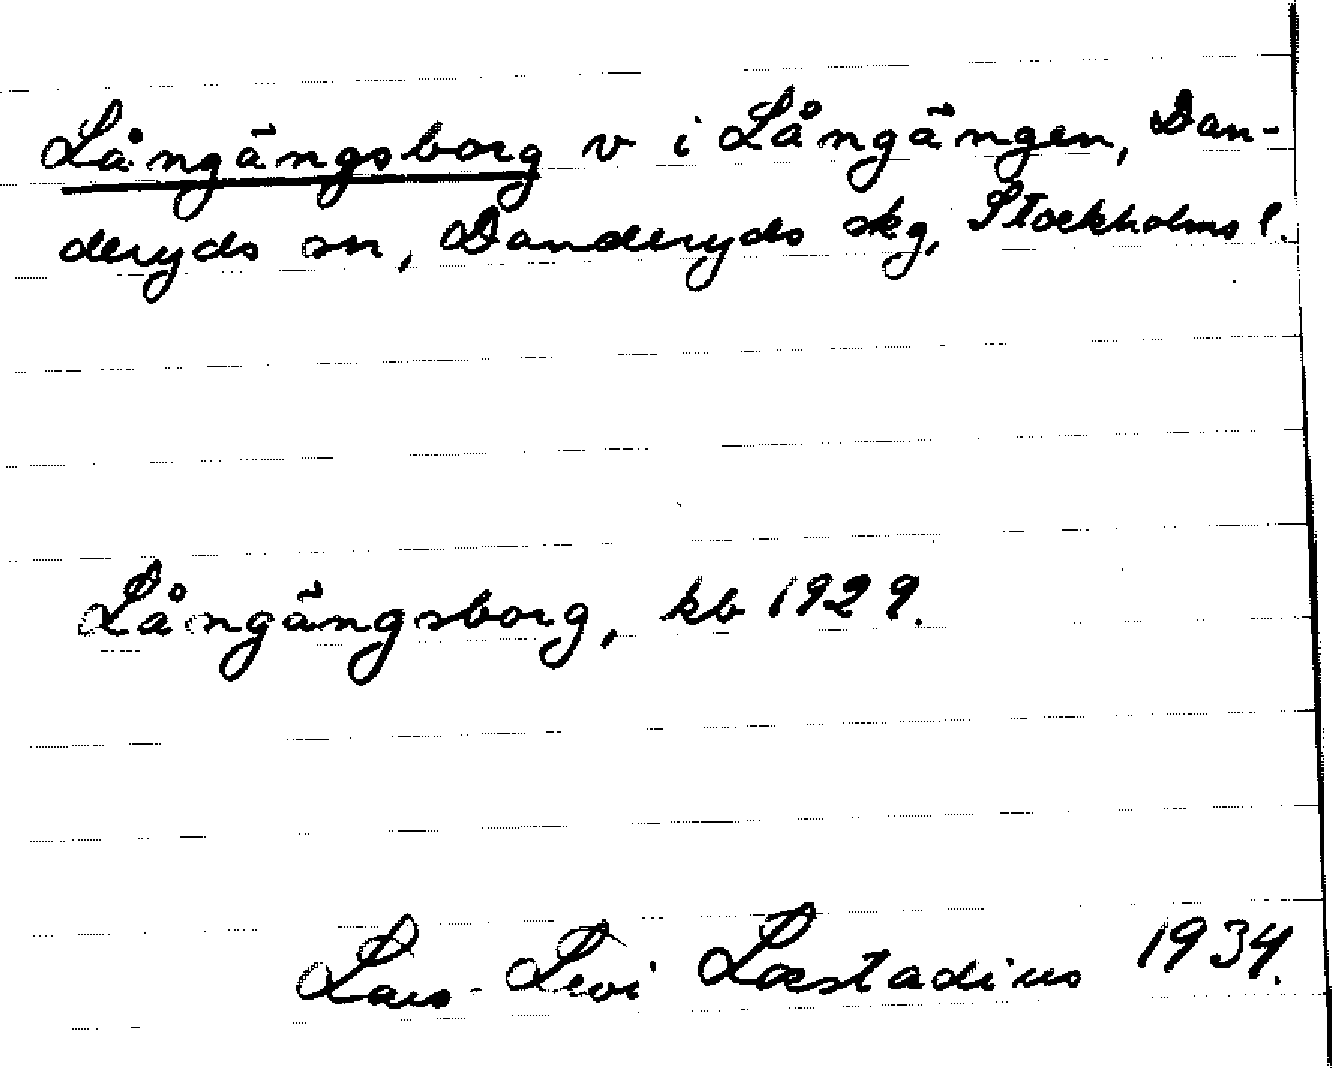 Långängsborg v i Långängen, Dan-
deryds sn, Danderyds skg, Stockholms l.
Långängsborg, kb 1929.
Lars-Levi Læstadius 1934.